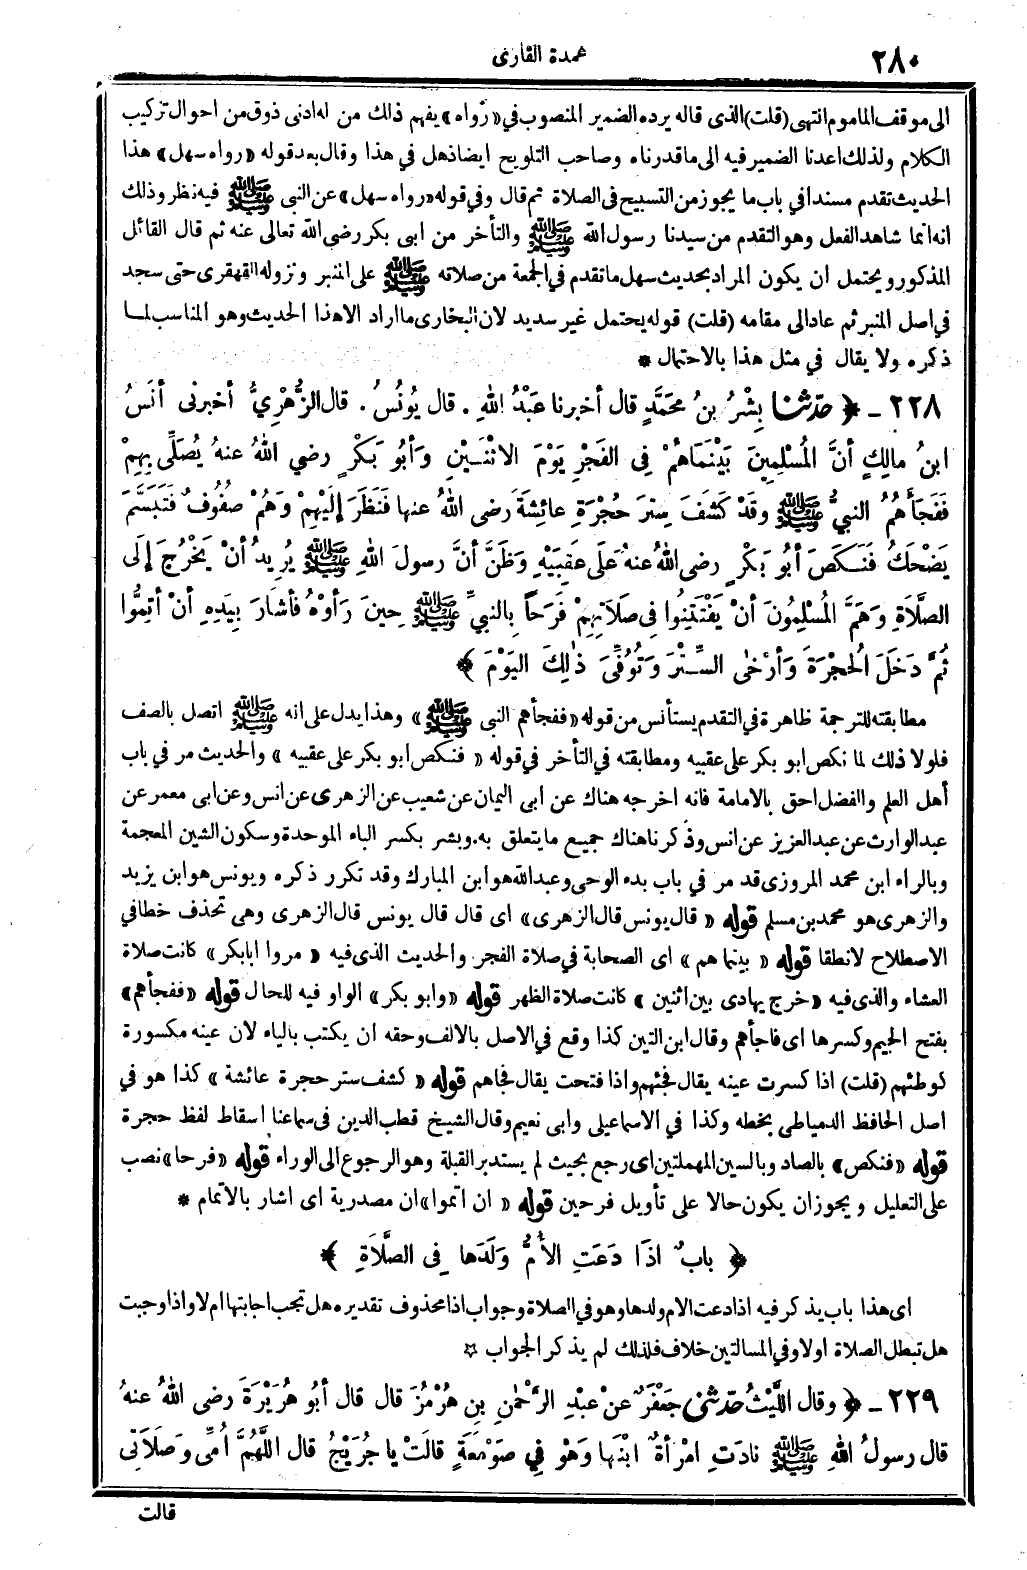 ٢٨٠
عمدة القارى
الى موقف الماموم انتهى (قلت) الذى قاله يرده الضمير المنصوب في «رواه» يفهم ذلك من له ادنى ذوق من احوال تركيب
الكلام ولذلك اعدنا الضمير فيه الى ما قدرناه وصاحب التلويح ايضا ذهل في هذا وقال بعد قوله «رواه سهل» هذا
الحديث تقدم مسندا في باب ما يجوز من التسبيح فى الصلاة ثم قال وفي قوله «رواه سهل» عن النبى ﷺ فيه نظر وذلك
انه انما شاهد الفعل وهو التقدم من سيدنا رسول الله ﷺ والتأخر من ابى بكر رضى الله تعالى عنه ثم قال القائل
المذكور ويحتمل ان يكون المراد بحديث سهل ما تقدم في الجمعة من صلاته ﷺ على المنبر ونزوله القهقرى حتى سجد
في اصل المنبر ثم عاد الى مقامه (قلت) قوله يحتمل غير سديد لان البخارى ما اراد الا هذا الحديث وهو المناسب لما
ذكره ولا يقال في مثل هذا بالاحتمال *
٢٢٨ ـ ﴿ حَدَّثَنَا بِشْرُ بنُ مُحَمَّدٍ قال أخبرنا عَبْدُ اللهِ . قال يُونُسُ . قال الزُّهْرِيُّ أخبرنى أنَسُ
ابنُ مالِكٍ أنَّ الْمُسْلِمِينَ بَيْنَمَا هُمْ فِى الفَجْرِ يَوْمَ الاثْنَيْنِ وَأبُو بَكْرٍ رضي اللهُ عنهُ يُصَلِّى بِهِمْ
فَفَجَأَهُمُ النبيُّ ﷺ وقَدْ كَشَفَ سِتْرَ حُجْرَةِ عائِشَةَ رضى اللهُ عنها فَنَظَرَ إلَيْهِمْ وَهُمْ صُفُوفٌ فَتَبَسَّمَ
يَضْحَكُ فَنَكَصَ أبُو بَكْرٍ رضى اللهُ عنهُ عَلَى عَقِبَيْهِ وَظَنَّ أنَّ رسولَ اللهِ ﷺ يُرِيدُ أنْ يَخْرُجَ إلَى
الصَّلَاةِ وَهَمَّ الْمُسْلِمُونَ أنْ يَفْتَتِنُوا فِى صَلَاتِهِمْ فَرَحَاً بِالنبيِّ ﷺ حِينَ رَأوْهُ فأشَارَ بِيَدِهِ أنْ أتِمُّوا
ثُمَّ دَخَلَ الْحُجْرَةَ وَأرْخَى السِّتْرَ وَتُوُفِّىَ ذٰلِكَ اليَوْمَ ﴾
مطابقته للترجمة ظاهرة في التقدم يستأنس من قوله «ففجأهم النبى ﷺ» وهذا يدل على انه ﷺ اتصل بالصف
فلولا ذلك لما نكص ابو بكر على عقبيه ومطابقته في التأخر في قوله «فنكص ابو بكر على عقبيه» والحديث مر في باب
أهل العلم والفضل احق بالامامة فانه اخرجه هناك عن ابى اليمان عن شعيب عن الزهرى عن انس وعن ابى معمر عن
عبد الوارث عن عبد العزيز عن انس وذكرنا هناك جميع ما يتعلق به. وبشر بكسر الباء الموحدة وسكون الشين المعجمة
وبالراء ابن محمد المروزى قد مر في باب بدء الوحى وعبد الله هو ابن المبارك وقد تكرر ذكره ويونس هو ابن يزيد
والزهرى هو محمد بن مسلم قوله «قال يونس قال الزهرى» اى قال قال يونس قال الزهرى وهى تحذف خطا في
الاصطلاح لا نطقا قوله «بينما هم» اى الصحابة في صلاة الفجر والحديث الذى فيه «مروا ابابكر» كانت صلاة
العشاء والذى فيه «خرج يهادى بين اثنين» كانت صلاة الظهر قوله «وابو بكر» الواو فيه للحال قوله «ففجأهم»
بفتح الجيم وكسرها اى فاجأهم وقال ابن التين كذا وقع في الاصل بالالف وحقه ان يكتب بالياء لان عينه مكسورة
كوطئهم (قلت) اذا كسرت عينه يقال فجئهم واذا فتحت يقال فجاهم قوله «كشف ستر حجرة عائشة» كذا هو في
اصل الحافظ الدمياطى بخطه وكذا في الاسماعيلى وابى نعيم وقال الشيخ قطب الدين فى سماعنا اسقاط لفظ حجرة
قوله «فنكص» بالصاد وبالسين المهملتين اى رجع بحيث لم يستدبر القبلة وهو الرجوع الى الوراء قوله «فرحا» نصب
على التعليل ويجوز ان يكون حالا على تأويل فرحين قوله «ان اتموا» ان مصدرية اى اشار بالاتمام *
﴿ بابٌ اذَا دَعَتِ الأُمُّ وَلَدَها فِى الصَّلَاةِ ﴾
اى هذا باب يذكر فيه اذا دعت الام ولدها وهو في الصلاة وجواب اذا محذوف تقديره هل تجب اجابتها ام لا واذا وجبت
هل تبطل الصلاة اولا وفي المسالتين خلاف فلذلك لم يذكر الجواب ☆
٢٢٩ ـ ﴿ وقال اللَّيْثُ حَدَّثَنِى جَعْفَرٌ عنْ عبْدِ الرَّحْمٰنِ بنِ هُرْمُزَ قال قال أبُو هُرَيْرَةَ رضى اللهُ عنهُ
قال رسولُ اللهِ ﷺ نادَتِ امْرأةٌ ابْنَها وَهْوَ فِي صَوْمَعَةٍ قالَتْ يا جُرَيْجُ قال اللَّهُمَّ أُمِّى وَصَلَاتِى
قالت